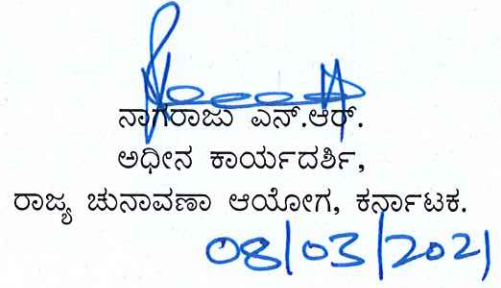 ನಾಗರಾಜು ಎನ್.ಆರ್.
ಅಧೀನ ಕಾರ್ಯದರ್ಶಿ,
ರಾಜ್ಯ ಚುನಾವಣಾ ಆಯೋಗ, ಕರ್ನಾಟಕ.
08/03/2021